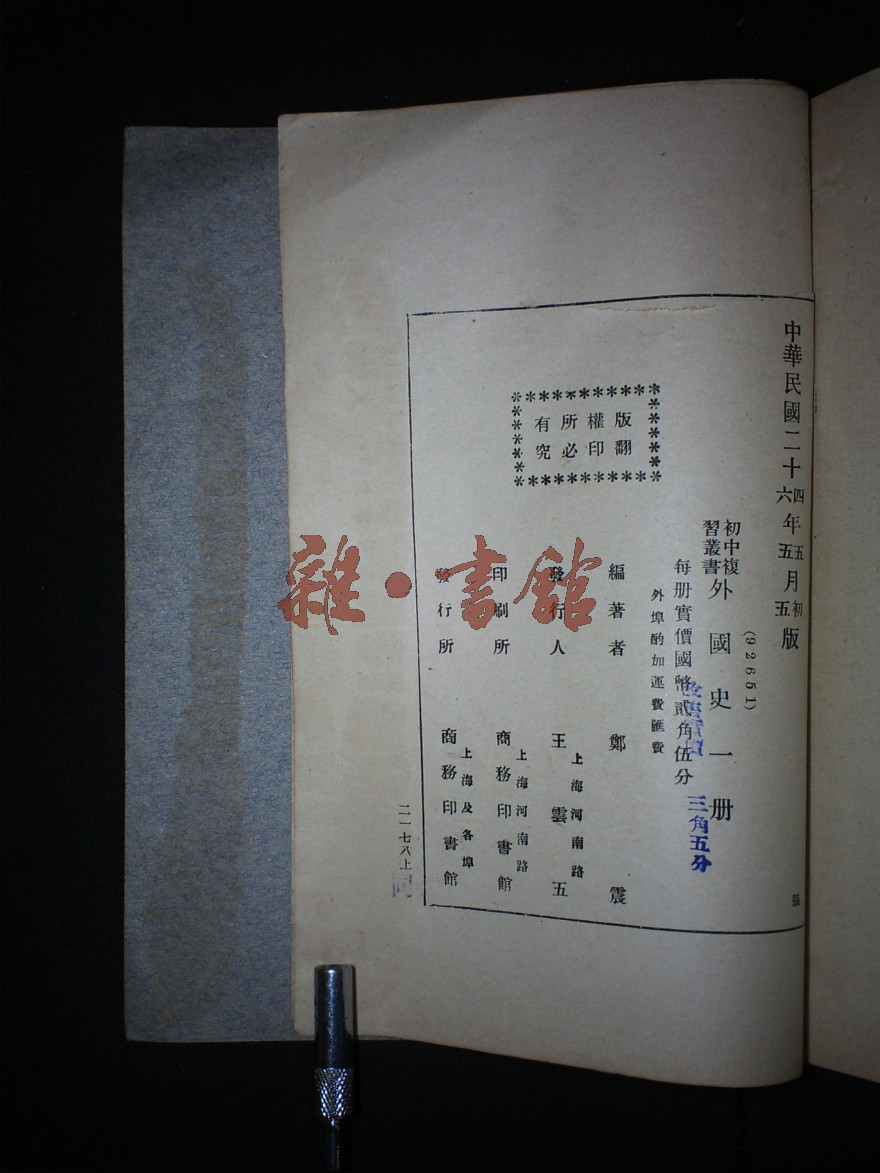 中華民國二十四年五月初版
六 五 五
(92651)
初中複習叢書 外國史一册
每册實價國幣貳角伍分
三角五分
外埠酌加運費匯費
版權所有
翻印必究
編著者 鄭震
發行人 王雲五
上海河南路
印刷所 商務印書館
上海河南路
發行所 商務印書館
上海及各埠
二一七八上
雜·書館